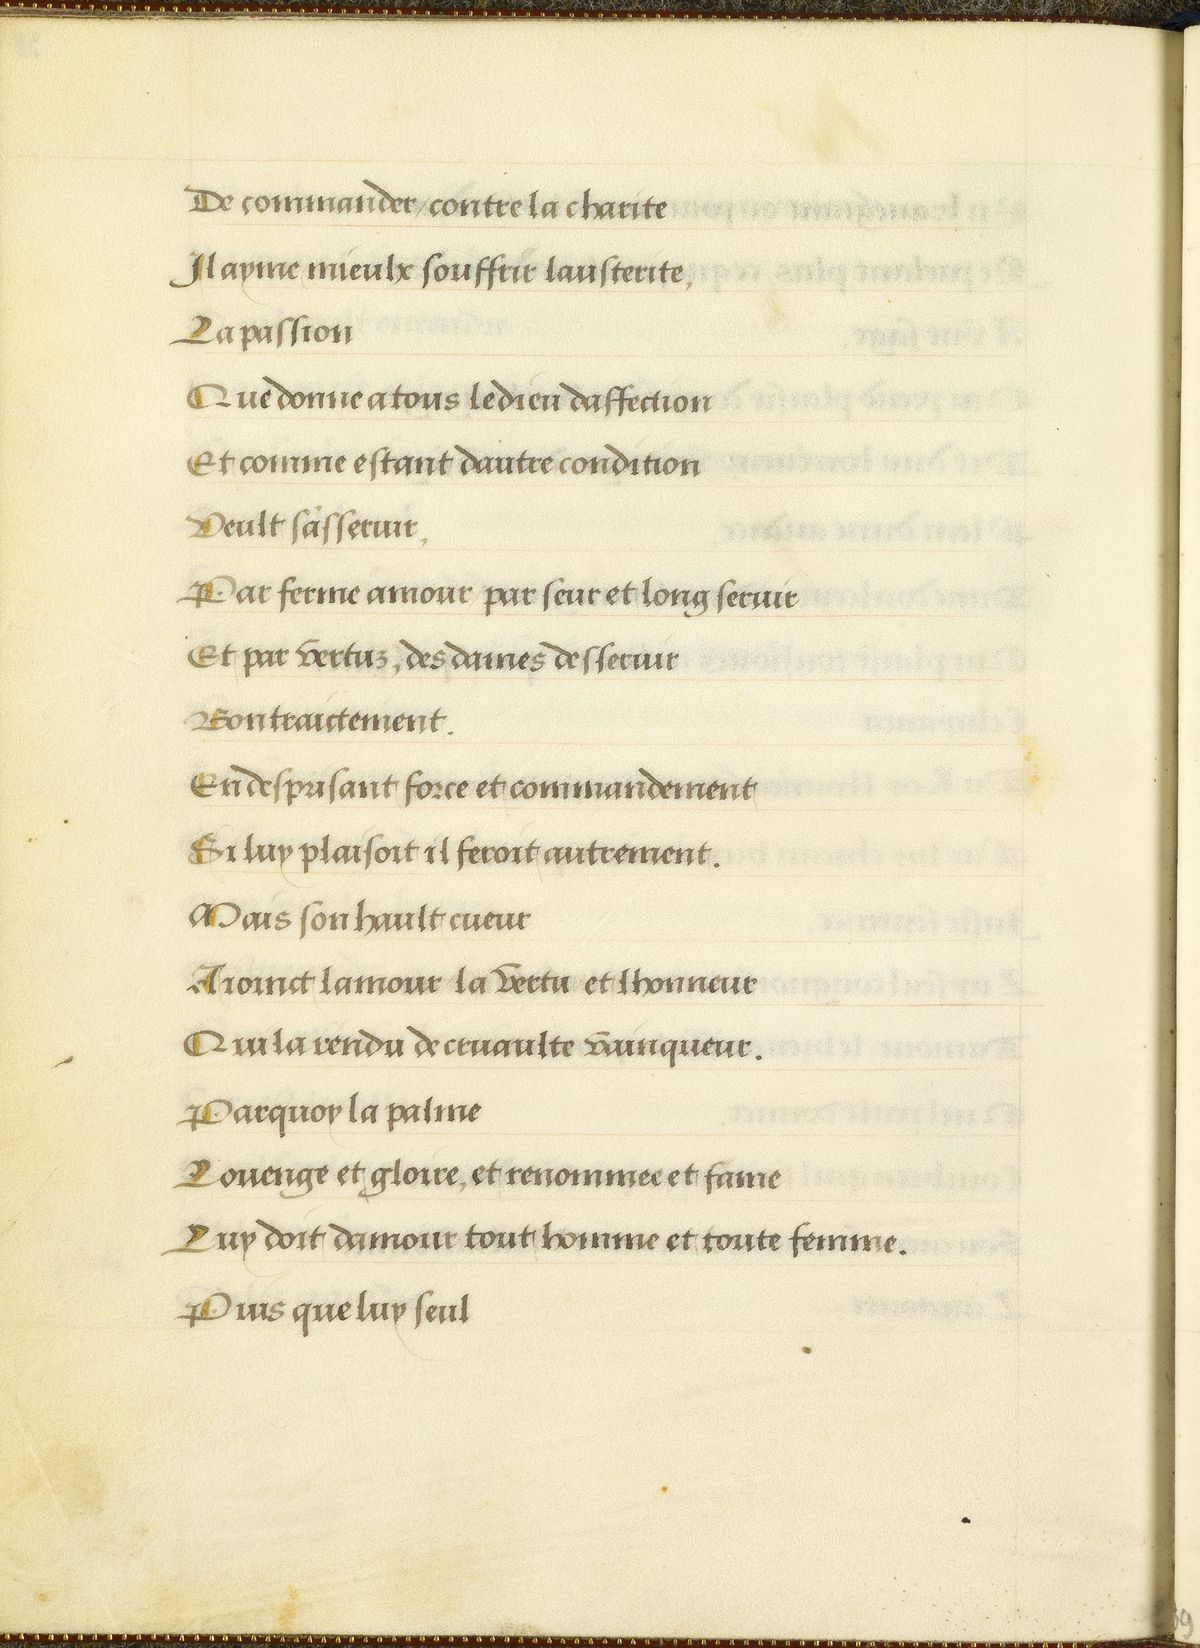 De commander/contre la charite
Il ayme mieulx souffrir lausterite,
La passion
Que donne a tous le dieu daffection
Et comme estant dautre condition
Veult sasseruir,
Par ferme amour par seur et long seruir
Et par vertuz, des dames desseruir
Bon traictement.
En desprisant force et commandement
Si luy plaisoit il feroit autrement.
Mais son hault cueur
A ioinct lamour la vertu et lhonneur
Qui la rendu de cruaulte vainqueur.
Parquoy la palme
Louenge et gloire, et renommee et fame
Luy doit damour tout homme et toute femme.
Puis que luy seul